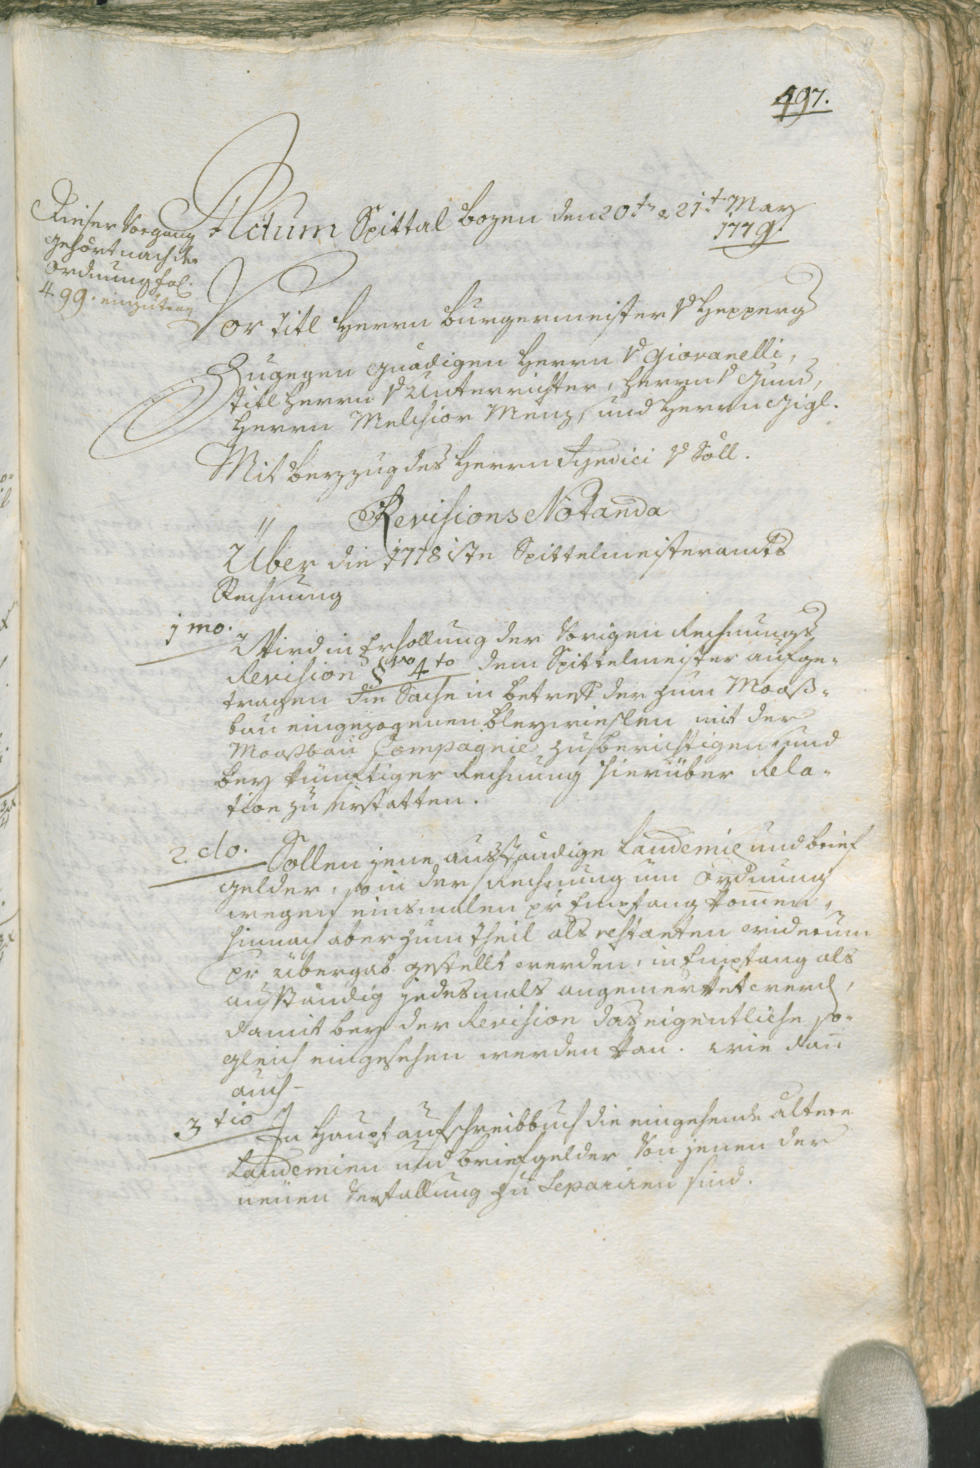 497.
Dieser Vorgang
gehört nach der
Ordnung fol.
499. einzutrag
Actum Spittal Bozen den 20t. & 21t. May
1779.
Vor titl Herrn Burgermeister v Hepperg
Zugegen gnädigen Herrn v Giovanelli,
titl Herrn v Unterrichter, Herrn v Gumer,
Herrn Melchior Menz, und Herrn Gigl.
Mit Beyzug des Herrn Syndici v Söll.
Revisions Notanda
Über die 1778iste Spittelmeisteramts
Rechnung
1mo. Wird in Erhollung der vorigen Rechnungs
Revision §vo 4to dem Spittelmeister aufge-
tragen die Sache in betreff der zum Moos-
bau eingezogenen Bleywieslen mit der
Moosbau Compagnie zu berichtigen und
bey künftiger Rechnung hierüber Rela-
tion zu erstatten.
2do. Sollen jene ausständige Laudemie und brief
gelder, so in der Rechnung um Ordnung
wegen einsmalen pr Empfang kommen,
hinnach aber zum theil als restanten widerum
pr übergab gestellt werden, in Empfang als
ausständig jedesmals angemerket werd,
damit bey der Revision das eigentliche so-
gleich eingesehen werden kan. wie dan
auch -
3tio In Haupt aufschreibbuch die eingehende altere
Laudemien und briefgelder von jenen der
neuen Verfallung zu Separiren sind.